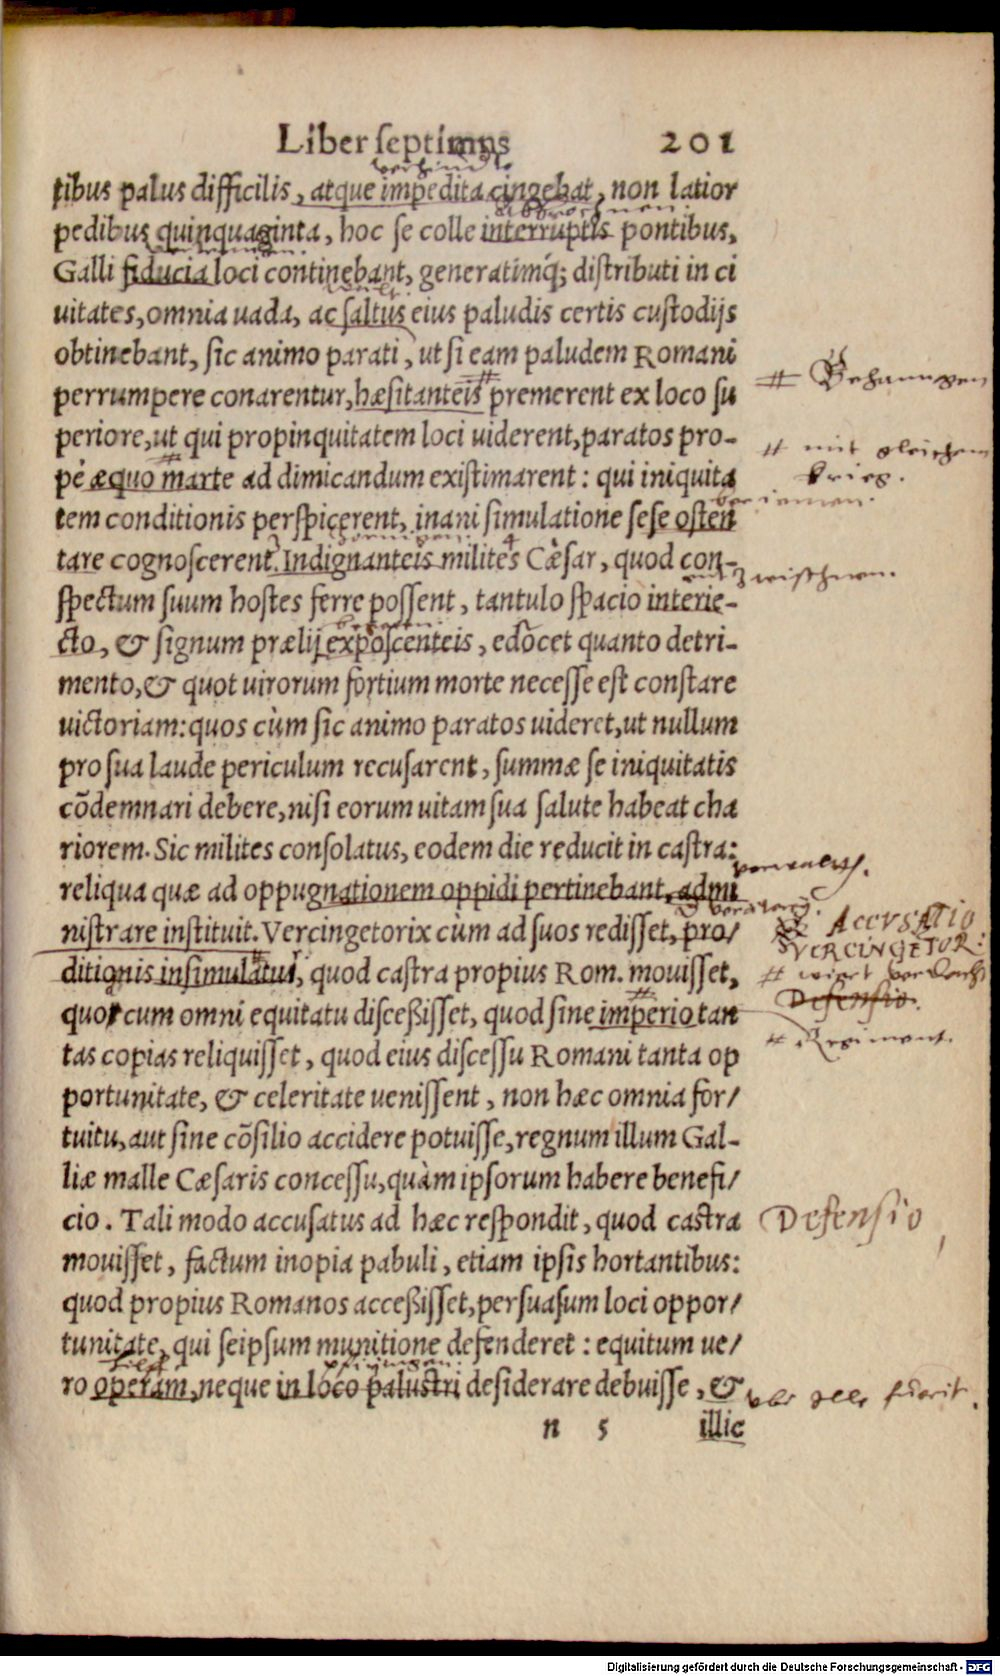 Liber septimus 201
tibus palus difficilis, atque impedita cingebat, non latior
pedibus quinquaginta, hoc se colle interruptis pontibus,
Galli fiducia loci continebant, generatimq́; distributi in ci
uitates, omnia uada, ac saltus eius paludis certis custodijs
obtinebant, sic animo parati, ut si eam paludem Romani
perrumpere conarentur, hæsitanteis premerent ex loco su
periore, ut qui propinquitatem loci uiderent, paratos pro-
pè æquo marte ad dimicandum existimarent: qui iniquita
# mit gleichem
krieg.
tem conditionis perspicerent, inani simulatione sese osten
tare cognoscerent. Indignanteis milites Cæsar, quod con-
spectum suum hostes ferre possent, tantulo spacio interie-
cto, & signum prælij exposcenteis, edocet quanto detri-
mento, & quot uirorum fortium morte necesse est constare
uictoriam: quos cùm sic animo paratos uideret, ut nullum
pro sua laude periculum recusarent, summæ se iniquitatis
cōdemnari debere, nisi eorum uitam sua salute habeat cha
riorem. Sic milites consolatus, eodem die reducit in castra:
reliqua quæ ad oppugnationem oppidi pertinebant, admi
nistrare instituit. Vercingetorix cùm ad suos redisset, pro/
ACCVSATIO
VERCINGETOR:
ditionis insimulatus, quod castra propius Rom. mouisset,
Defensio.
quod cum omni equitatu discessisset, quod sine imperio tan
# Regiment.
tas copias reliquisset, quod eius discessu Romani tanta op
portunitate, & celeritate uenissent, non hæc omnia for/
tuitu, aut sine cōsilio accidere potuisse, regnum illum Gal-
liæ malle Cæsaris concessu, quàm ipsorum habere benefi/
cio. Tali modo accusatus ad hæc respondit, quod castra
Defensio
mouisset, factum inopia pabuli, etiam ipsis hortantibus:
quod propius Romanos accessisset, persuasum loci oppor/
tunitate, qui seipsum munitione defenderet: equitum ue/
ro operam, neque in loco palustri desiderare debuisse, &
n 5 illic
Digitalisierung gefördert durch die Deutsche Forschungsgemeinschaft - DFG